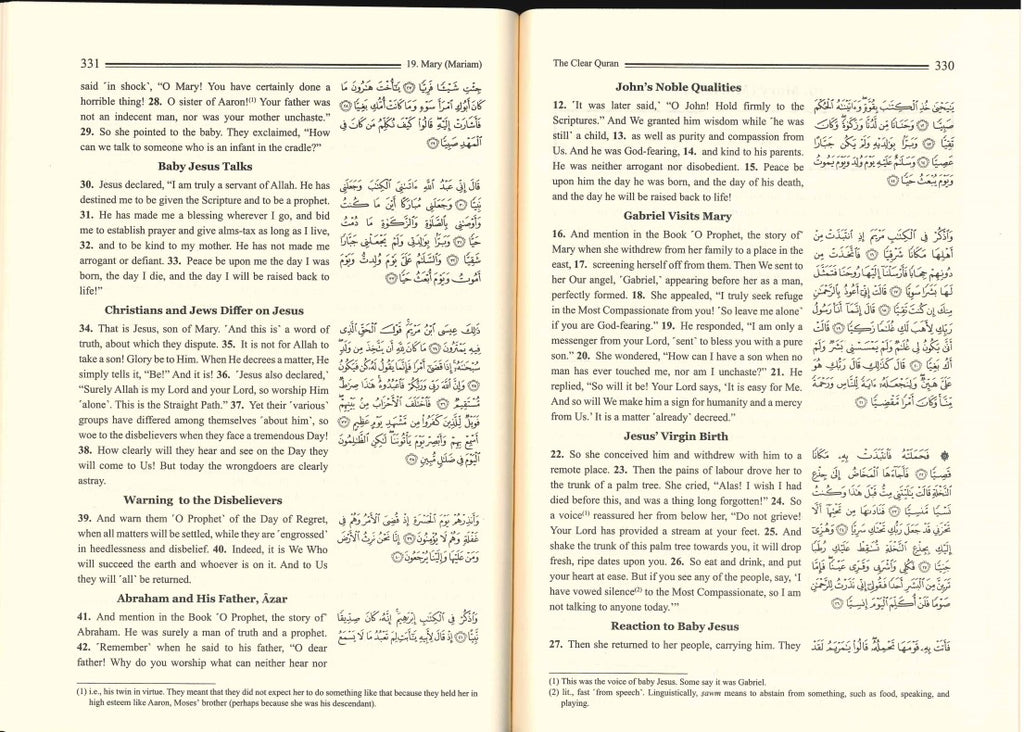 The Clear Quran 330
John's Noble Qualities
12. ˹It was later said,˺ "O John! Hold firmly to the
Scriptures." And We granted him wisdom while ˹he was
still˺ a child, 13. as well as purity and compassion from
Us. And he was God-fearing, 14. and kind to his parents.
He was neither arrogant nor disobedient. 15. Peace be
upon him the day he was born, and the day of his death,
and the day he will be raised back to life!
يَٰيَحْيَىٰ خُذِ ٱلْكِتَٰبَ بِقُوَّةٍ وَءَاتَيْنَٰهُ ٱلْحُكْمَ
صَبِيًّا ١٢ وَحَنَانًا مِّن لَّدُنَّا وَزَكَوٰةً وَكَانَ
تَقِيًّا ١٣ وَبَرًّۢا بِوَٰلِدَيْهِ وَلَمْ يَكُن جَبَّارًا
عَصِيًّا ١٤ وَسَلَٰمٌ عَلَيْهِ يَوْمَ وُلِدَ وَيَوْمَ يَمُوتُ
وَيَوْمَ يُبْعَثُ حَيًّا ١٥
Gabriel Visits Mary
16. And mention in the Book ˹O Prophet, the story of˺
Mary when she withdrew from her family to a place in the
east, 17. screening herself off from them. Then We sent to
her Our angel, ˹Gabriel,˺ appearing before her as a man,
perfectly formed. 18. She appealed, "I truly seek refuge
in the Most Compassionate from you! ˹So leave me alone˺
if you are God-fearing." 19. He responded, "I am only a
messenger from your Lord, ˹sent˺ to bless you with a pure
son." 20. She wondered, "How can I have a son when no
man has ever touched me, nor am I unchaste?" 21. He
replied, "So will it be! Your Lord says, 'It is easy for Me.
And so will We make him a sign for humanity and a mercy
from Us.' It is a matter ˹already˺ decreed."
وَٱذْكُرْ فِى ٱلْكِتَٰبِ مَرْيَمَ إِذِ ٱنتَبَذَتْ مِنْ
أَهْلِهَا مَكَانًا شَرْقِيًّا ١٦ فَٱتَّخَذَتْ مِن
دُونِهِمْ حِجَابًا فَأَرْسَلْنَآ إِلَيْهَا رُوحَنَا فَتَمَثَّلَ
لَهَا بَشَرًا سَوِيًّا ١٧ قَالَتْ إِنِّىٓ أَعُوذُ بِٱلرَّحْمَٰنِ
مِنكَ إِن كُنتَ تَقِيًّا ١٨ قَالَ إِنَّمَآ أَنَا۠ رَسُولُ
رَبِّكِ لِأَهَبَ لَكِ غُلَٰمًا زَكِيًّا ١٩ قَالَتْ
أَنَّىٰ يَكُونُ لِى غُلَٰمٌ وَلَمْ يَمْسَسْنِى بَشَرٌ وَلَمْ
أَكُ بَغِيًّا ٢٠ قَالَ كَذَٰلِكِ قَالَ رَبُّكِ هُوَ
عَلَىَّ هَيِّنٌ وَلِنَجْعَلَهُۥٓ ءَايَةً لِّلنَّاسِ وَرَحْمَةً
مِّنَّا وَكَانَ أَمْرًا مَّقْضِيًّا ٢١
Jesus' Virgin Birth
22. So she conceived him and withdrew with him to a
remote place. 23. Then the pains of labour drove her to
the trunk of a palm tree. She cried, "Alas! I wish I had
died before this, and was a thing long forgotten!" 24. So
a voice(1) reassured her from below her, "Do not grieve!
Your Lord has provided a stream at your feet. 25. And
shake the trunk of this palm tree towards you, it will drop
fresh, ripe dates upon you. 26. So eat and drink, and put
your heart at ease. But if you see any of the people, say, 'I
have vowed silence(2) to the Most Compassionate, so I am
not talking to anyone today.'"
۞ فَحَمَلَتْهُ فَٱنتَبَذَتْ بِهِۦ مَكَانًا
قَصِيًّا ٢٢ فَأَجَآءَهَا ٱلْمَخَاضُ إِلَىٰ جِذْعِ
ٱلنَّخْلَةِ قَالَتْ يَٰلَيْتَنِى مِتُّ قَبْلَ هَٰذَا وَكُنتُ
نَسْيًا مَّنسِيًّا ٢٣ فَنَادَىٰهَا مِن تَحْتِهَآ أَلَّا
تَحْزَنِى قَدْ جَعَلَ رَبُّكِ تَحْتَكِ سَرِيًّا ٢٤ وَهُزِّىٓ
إِلَيْكِ بِجِذْعِ ٱلنَّخْلَةِ تُسَٰقِطْ عَلَيْكِ رُطَبًا
جَنِيًّا ٢٥ فَكُلِى وَٱشْرَبِى وَقَرِّى عَيْنًا فَإِمَّا
تَرَيِنَّ مِنَ ٱلْبَشَرِ أَحَدًا فَقُولِىٓ إِنِّى نَذَرْتُ لِلرَّحْمَٰنِ
صَوْمًا فَلَنْ أُكَلِّمَ ٱلْيَوْمَ إِنسِيًّا ٢٦
Reaction to Baby Jesus
27. Then she returned to her people, carrying him. They
فَأَتَتْ بِهِۦ قَوْمَهَا تَحْمِلُهُۥ قَالُوا۟ يَٰمَرْيَمُ لَقَدْ
(1) This was the voice of baby Jesus. Some say it was Gabriel.
(2) lit., fast ˹from speech˺. Linguistically, ṣawm means to abstain from something, such as food, speaking, and
playing.
331 19. Mary (Mariam)
said ˹in shock˺, "O Mary! You have certainly done a
horrible thing! 28. O sister of Aaron!(1) Your father was
not an indecent man, nor was your mother unchaste."
29. So she pointed to the baby. They exclaimed, "How
can we talk to someone who is an infant in the cradle?"
جِئْتِ شَيْـًٔا فَرِيًّا ٢٧ يَٰٓأُخْتَ هَٰرُونَ مَا
كَانَ أَبُوكِ ٱمْرَأَ سَوْءٍ وَمَا كَانَتْ أُمُّكِ بَغِيًّا ٢٨
فَأَشَارَتْ إِلَيْهِ قَالُوا۟ كَيْفَ نُكَلِّمُ مَن كَانَ فِى
ٱلْمَهْدِ صَبِيًّا ٢٩
Baby Jesus Talks
30. Jesus declared, "I am truly a servant of Allah. He has
destined me to be given the Scripture and to be a prophet.
31. He has made me a blessing wherever I go, and bid
me to establish prayer and give alms-tax as long as I live,
32. and to be kind to my mother. He has not made me
arrogant or defiant. 33. Peace be upon me the day I was
born, the day I die, and the day I will be raised back to
life!"
قَالَ إِنِّى عَبْدُ ٱللَّهِ ءَاتَىٰنِىَ ٱلْكِتَٰبَ وَجَعَلَنِى
نَبِيًّا ٣٠ وَجَعَلَنِى مُبَارَكًا أَيْنَ مَا كُنتُ
وَأَوْصَٰنِى بِٱلصَّلَوٰةِ وَٱلزَّكَوٰةِ مَا دُمْتُ
حَيًّا ٣١ وَبَرًّۢا بِوَٰلِدَتِى وَلَمْ يَجْعَلْنِى جَبَّارًا
شَقِيًّا ٣٢ وَٱلسَّلَٰمُ عَلَىَّ يَوْمَ وُلِدتُّ وَيَوْمَ
أَمُوتُ وَيَوْمَ أُبْعَثُ حَيًّا ٣٣
Christians and Jews Differ on Jesus
34. That is Jesus, son of Mary. ˹And this is˺ a word of
truth, about which they dispute. 35. It is not for Allah to
take a son! Glory be to Him. When He decrees a matter, He
simply tells it, "Be!" And it is! 36. ˹Jesus also declared,˺
"Surely Allah is my Lord and your Lord, so worship Him
˹alone˺. This is the Straight Path." 37. Yet their ˹various˺
groups have differed among themselves ˹about him˺, so
woe to the disbelievers when they face a tremendous Day!
38. How clearly will they hear and see on the Day they
will come to Us! But today the wrongdoers are clearly
astray.
ذَٰلِكَ عِيسَى ٱبْنُ مَرْيَمَ قَوْلَ ٱلْحَقِّ ٱلَّذِى
فِيهِ يَمْتَرُونَ ٣٤ مَا كَانَ لِلَّهِ أَن يَتَّخِذَ مِن وَلَدٍ
سُبْحَٰنَهُۥٓ إِذَا قَضَىٰٓ أَمْرًا فَإِنَّمَا يَقُولُ لَهُۥ كُن فَيَكُونُ
٣٥ وَإِنَّ ٱللَّهَ رَبِّى وَرَبُّكُمْ فَٱعْبُدُوهُ هَٰذَا صِرَٰطٌ
مُّسْتَقِيمٌ ٣٦ فَٱخْتَلَفَ ٱلْأَحْزَابُ مِنۢ بَيْنِهِمْ
فَوَيْلٌ لِّلَّذِينَ كَفَرُوا۟ مِن مَّشْهَدِ يَوْمٍ عَظِيمٍ ٣٧
أَسْمِعْ بِهِمْ وَأَبْصِرْ يَوْمَ يَأْتُونَنَا لَٰكِنِ ٱلظَّٰلِمُونَ
ٱلْيَوْمَ فِى ضَلَٰلٍ مُّبِينٍ ٣٨
Warning to the Disbelievers
39. And warn them ˹O Prophet˺ of the Day of Regret,
when all matters will be settled, while they are ˹engrossed˺
in heedlessness and disbelief. 40. Indeed, it is We Who
will succeed the earth and whoever is on it. And to Us
they will ˹all˺ be returned.
وَأَنذِرْهُمْ يَوْمَ ٱلْحَسْرَةِ إِذْ قُضِىَ ٱلْأَمْرُ وَهُمْ فِى
غَفْلَةٍ وَهُمْ لَا يُؤْمِنُونَ ٣٩ إِنَّا نَحْنُ نَرِثُ ٱلْأَرْضَ
وَمَنْ عَلَيْهَا وَإِلَيْنَا يُرْجَعُونَ ٤٠
Abraham and His Father, Āzar
41. And mention in the Book ˹O Prophet, the story of˺
Abraham. He was surely a man of truth and a prophet.
42. ˹Remember˺ when he said to his father, "O dear
father! Why do you worship what can neither hear nor
وَٱذْكُرْ فِى ٱلْكِتَٰبِ إِبْرَٰهِيمَ إِنَّهُۥ كَانَ صِدِّيقًا
نَّبِيًّا ٤١ إِذْ قَالَ لِأَبِيهِ يَٰٓأَبَتِ لِمَ تَعْبُدُ مَا لَا يَسْمَعُ
(1) i.e., his twin in virtue. They meant that they did not expect her to do something like that because they held her in
high esteem like Aaron, Moses' brother (perhaps because she was his descendant).